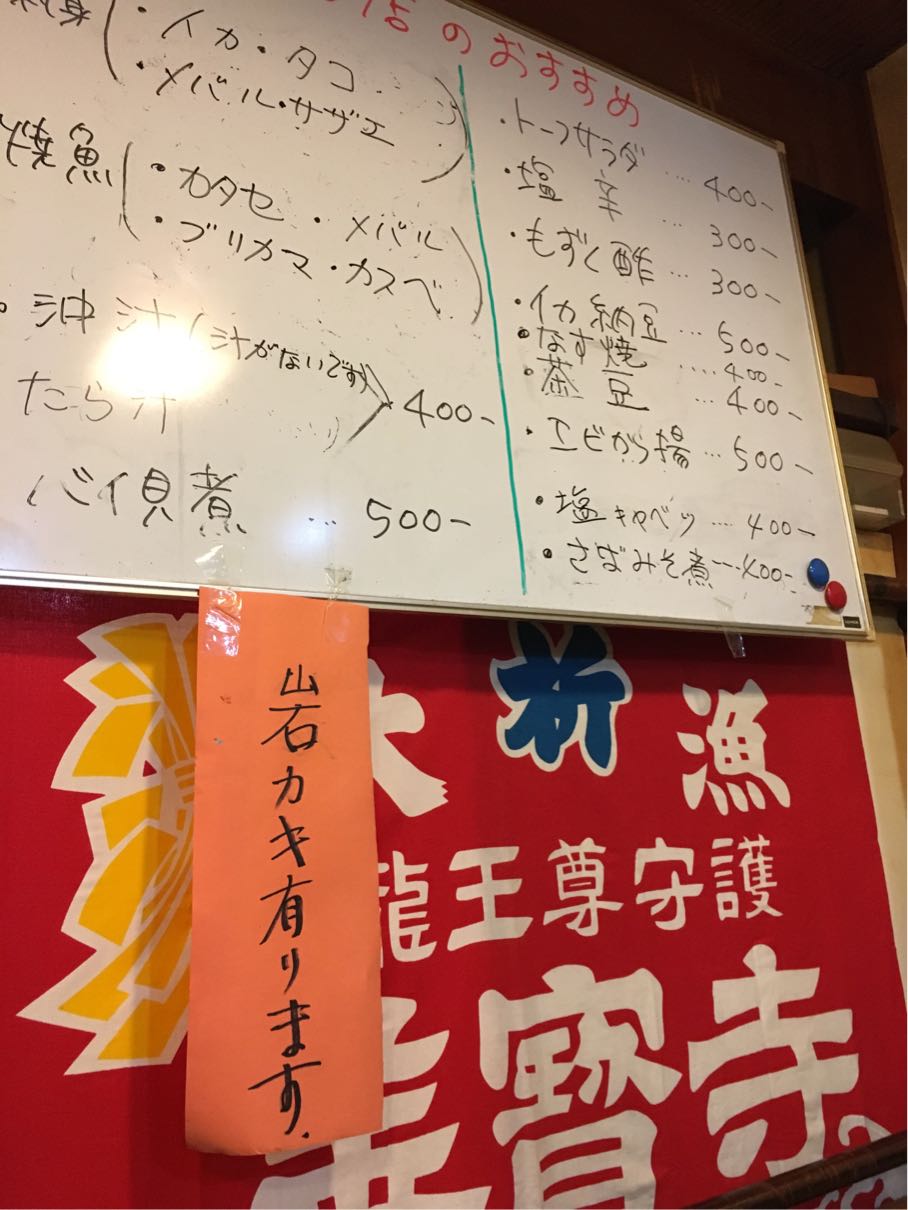 店のおすすめ
・イカ・タコ
・メバル・サザエ
焼魚
・カタセ・メバル
・ブリカマ・カスベ
・沖汁(汁がないです)
たら汁
400-
バイ貝煮 … 500-
・トーフサラダ …. 400-
・塩辛 … 300-
・もずく酢 … 300-
・イカ納豆 … 500-
・なす焼 .... 400-
・茶豆 … 400-
・エビから揚 … 500-
・塩キャベツ … 400-
・さばみそ煮 --- 400-
岩カキ有ります.
大 祈 漁
龍王尊守護
寳寺